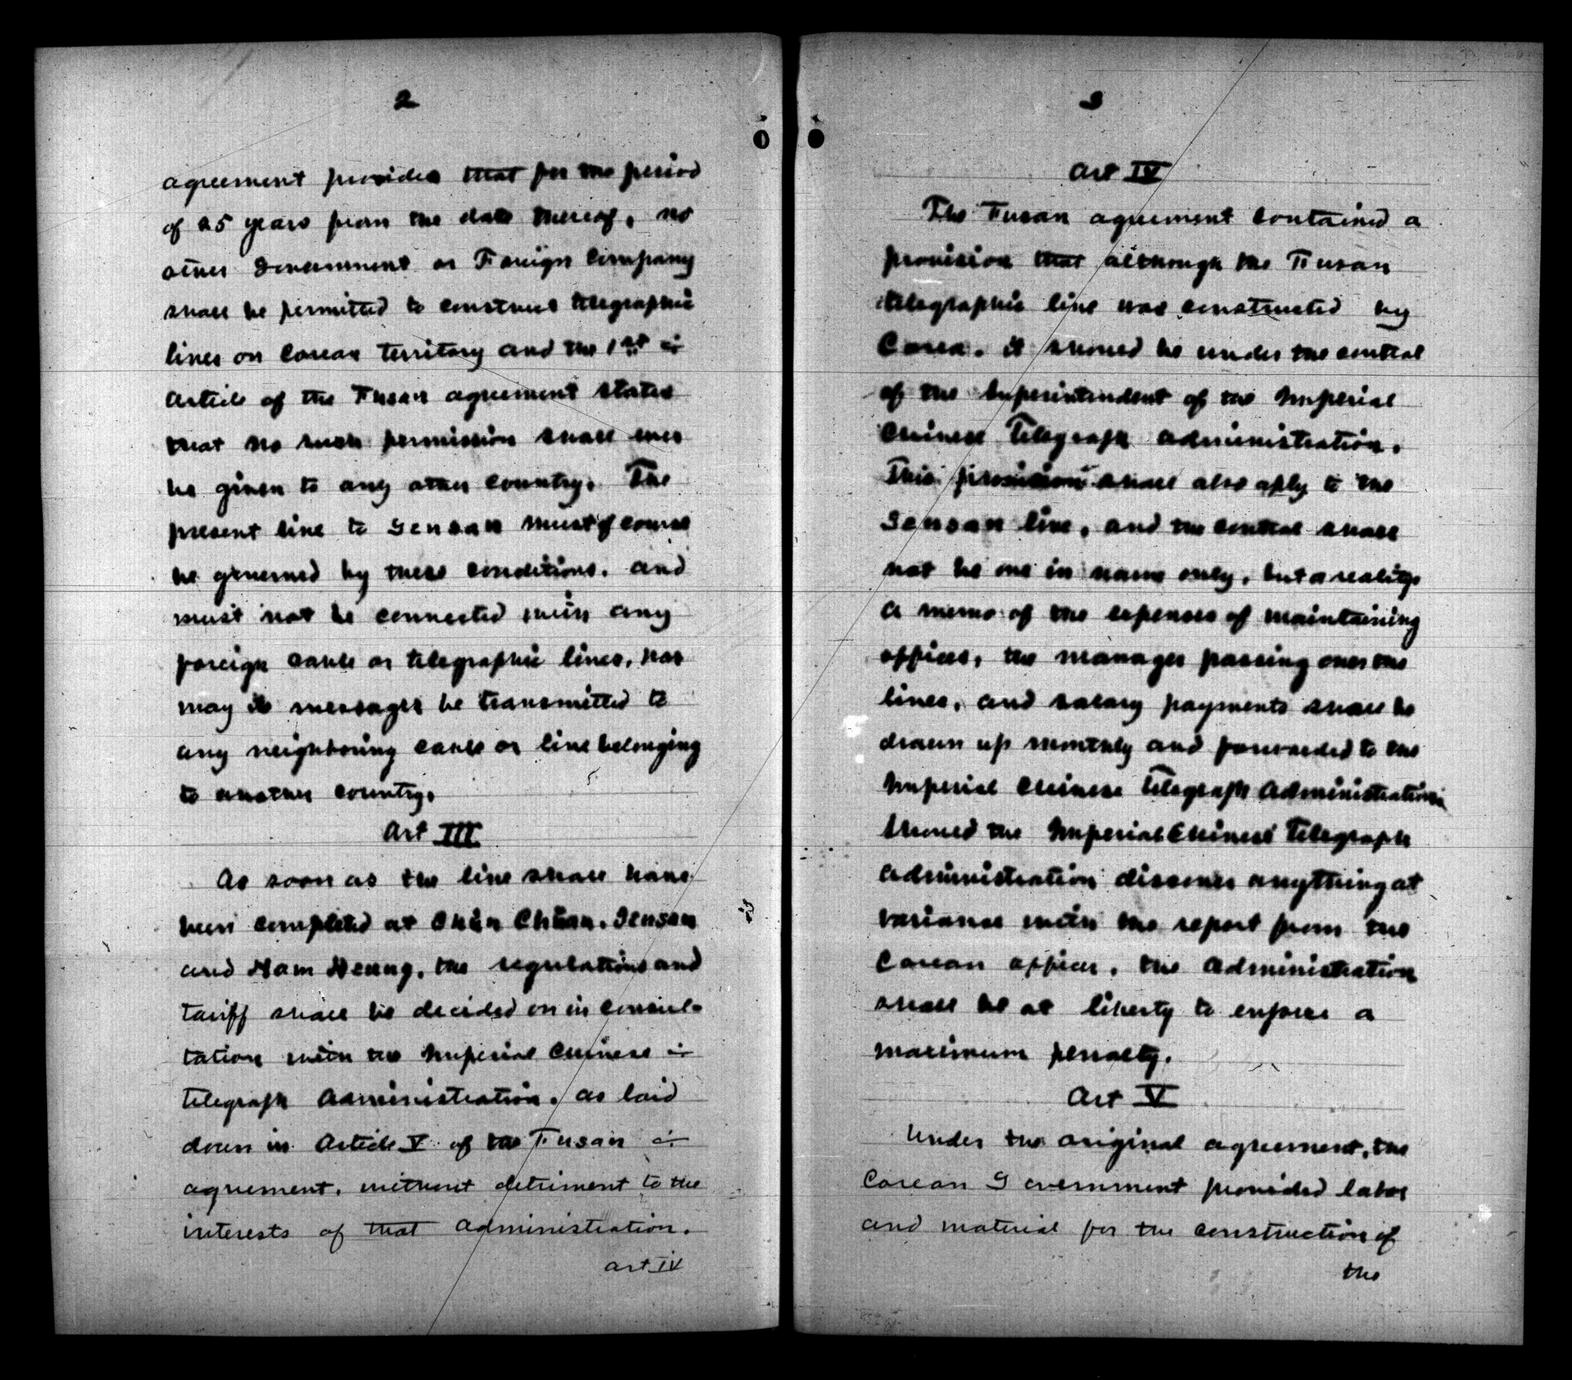 2
agreement provides that for the period
of 25 years from the date thereof, no
other Government or Foreign Company
shall be permitted to construct telegraphic
lines on Corean territory and the 1st
Article of the Fusan agreement states
that no such permission shall ever
be given to any other country. The
present line to Gensan must of course
be governed by these conditions, and
must not be connected with any
foreign cable or telegraphic lines, nor
may its messages be transmitted to
any neighboring cable or line belonging
to another country.
Art III
As soon as the line shall have
been completed at Chün Chüan, Gensan
and Ham Heung, the regulations and
tariff shall be decided on in consul-
tation with the Imperial Chinese
telegraph Administration, as laid
down in Article V of the Fusan
agreement, without detriment to the
interests of that administration.
Art IV
3
Art IV
The Fusan agreement contained a
provision that although the Fusan
telegraphic line was constructed by
Corea, it should be under the control
of the Superintendent of the Imperial
Chinese Telegraph Administration.
This provision shall also aply to the
Gensan line, and the control shall
not be one in name only, but a reality
A memo of the expenses of maintaining
offices, the manager passing over the
lines, and salary payments shall be
drawn up monthly and forwarded to the
Imperial Chinese Telegraph Administration
Should the Imperial Chinese Telegraph
Administration discover anything at
variance with the report from the
Corean officer, the Administration
shall be at liberty to enforce a
maximum penalty.
Art V
Under the original agreement, the
Corean Government provided labor
and material for the construction of
the